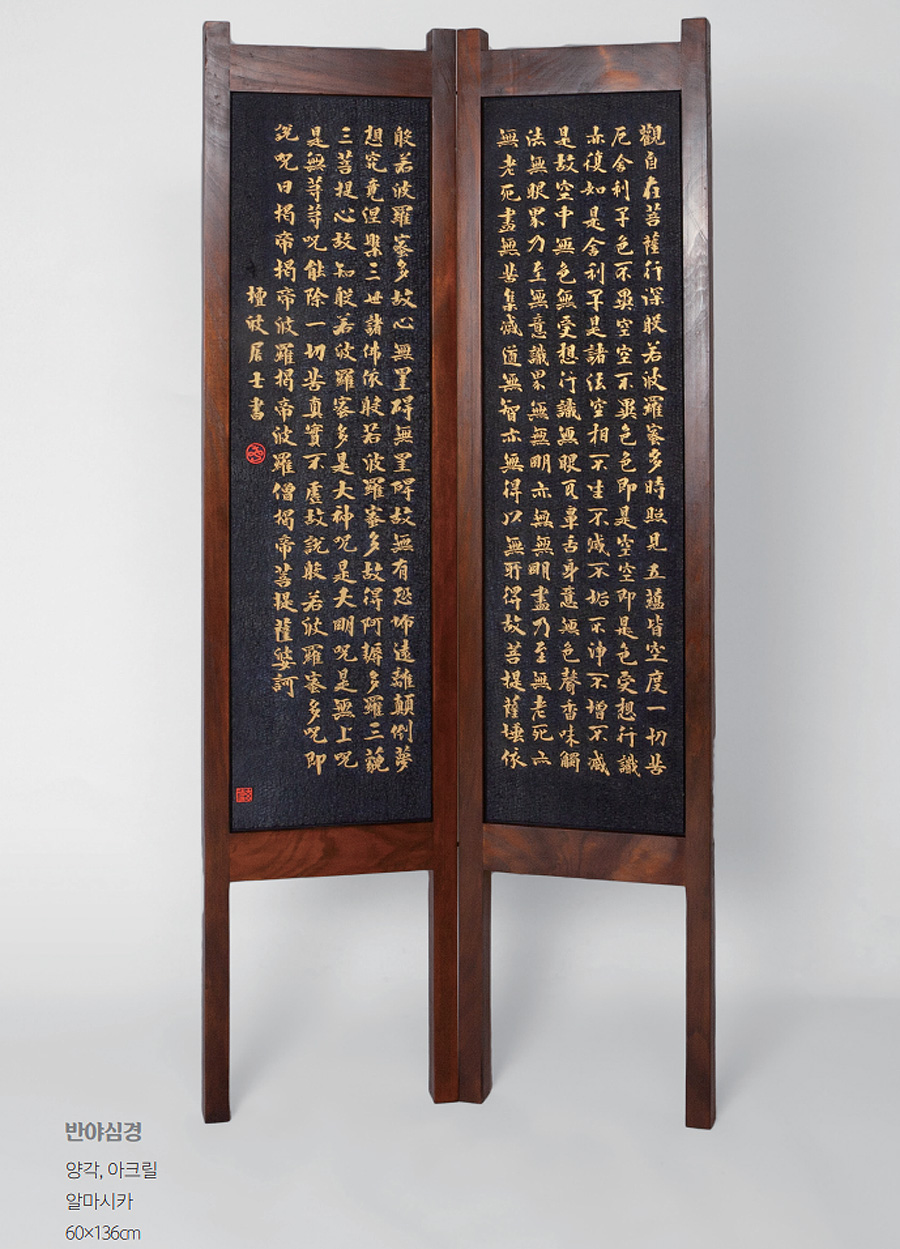 觀自在菩薩行深般若波羅蜜多時照見五蘊皆空度一切苦
厄舍利子色不異空空不異色色即是空空即是色受想行識
亦復如是舍利子是諸法空相不生不滅不垢不淨不增不減
是故空中無色無受想行識無眼耳鼻舌身意無色聲香味觸
法無眼界乃至無意識界無無明亦無無明盡乃至無老死亦
無老死盡無苦集滅道無智亦無得以無所得故菩提薩埵依
般若波羅蜜多故心無罣碍無罣碍故無有恐怖遠離顛倒夢
想究竟涅槃三世諸佛依般若波羅蜜多故得阿耨多羅三藐
三菩提心故知般若波羅蜜多是大神呪是大明呪是無上呪
是無等等呪能除一切苦真實不虛故說般若波羅蜜多呪即
說呪曰揭帝揭帝波羅揭帝波羅僧揭帝菩提薩婆訶
檀波居士書
반야심경
양각, 아크릴
알마시카
60×136cm